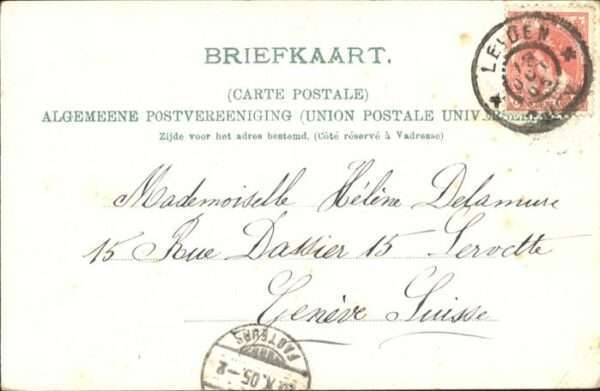 BRIEFKAART.
(CARTE POSTALE)
ALGEMEENE POSTVEREENIGING (UNION POSTALE UNIVERSELLE)
Zijde voor het adres bestemd. (Côté réservé à l'adresse)
LEIDEN
Mademoiselle Hélène Delamure
15 Rue Dassier 15 Servette
Genève Suisse
FACTEURS
X.05.-2